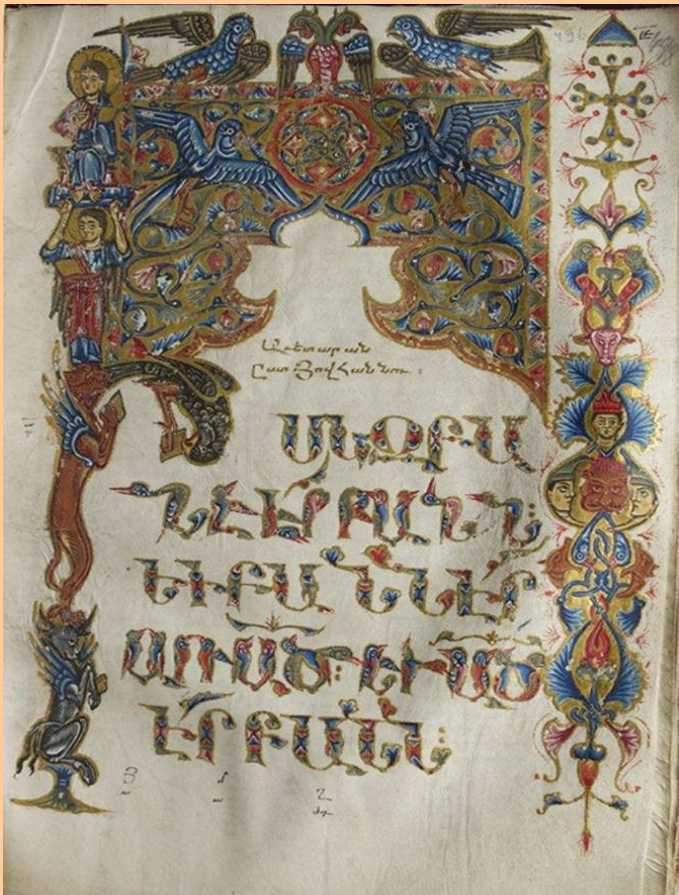 496
Աւետարան
Ըստ Յովհաննու :
Ի ՍԿԶԲԱ
ՆԷ ԷՐ ԲԱՆՆ:
ԵՒ ԲԱՆՆ ԷՐ
ԱՌ ԱԾ: ԵՒ ԱԾ
ԷՐ ԲԱՆՆ: